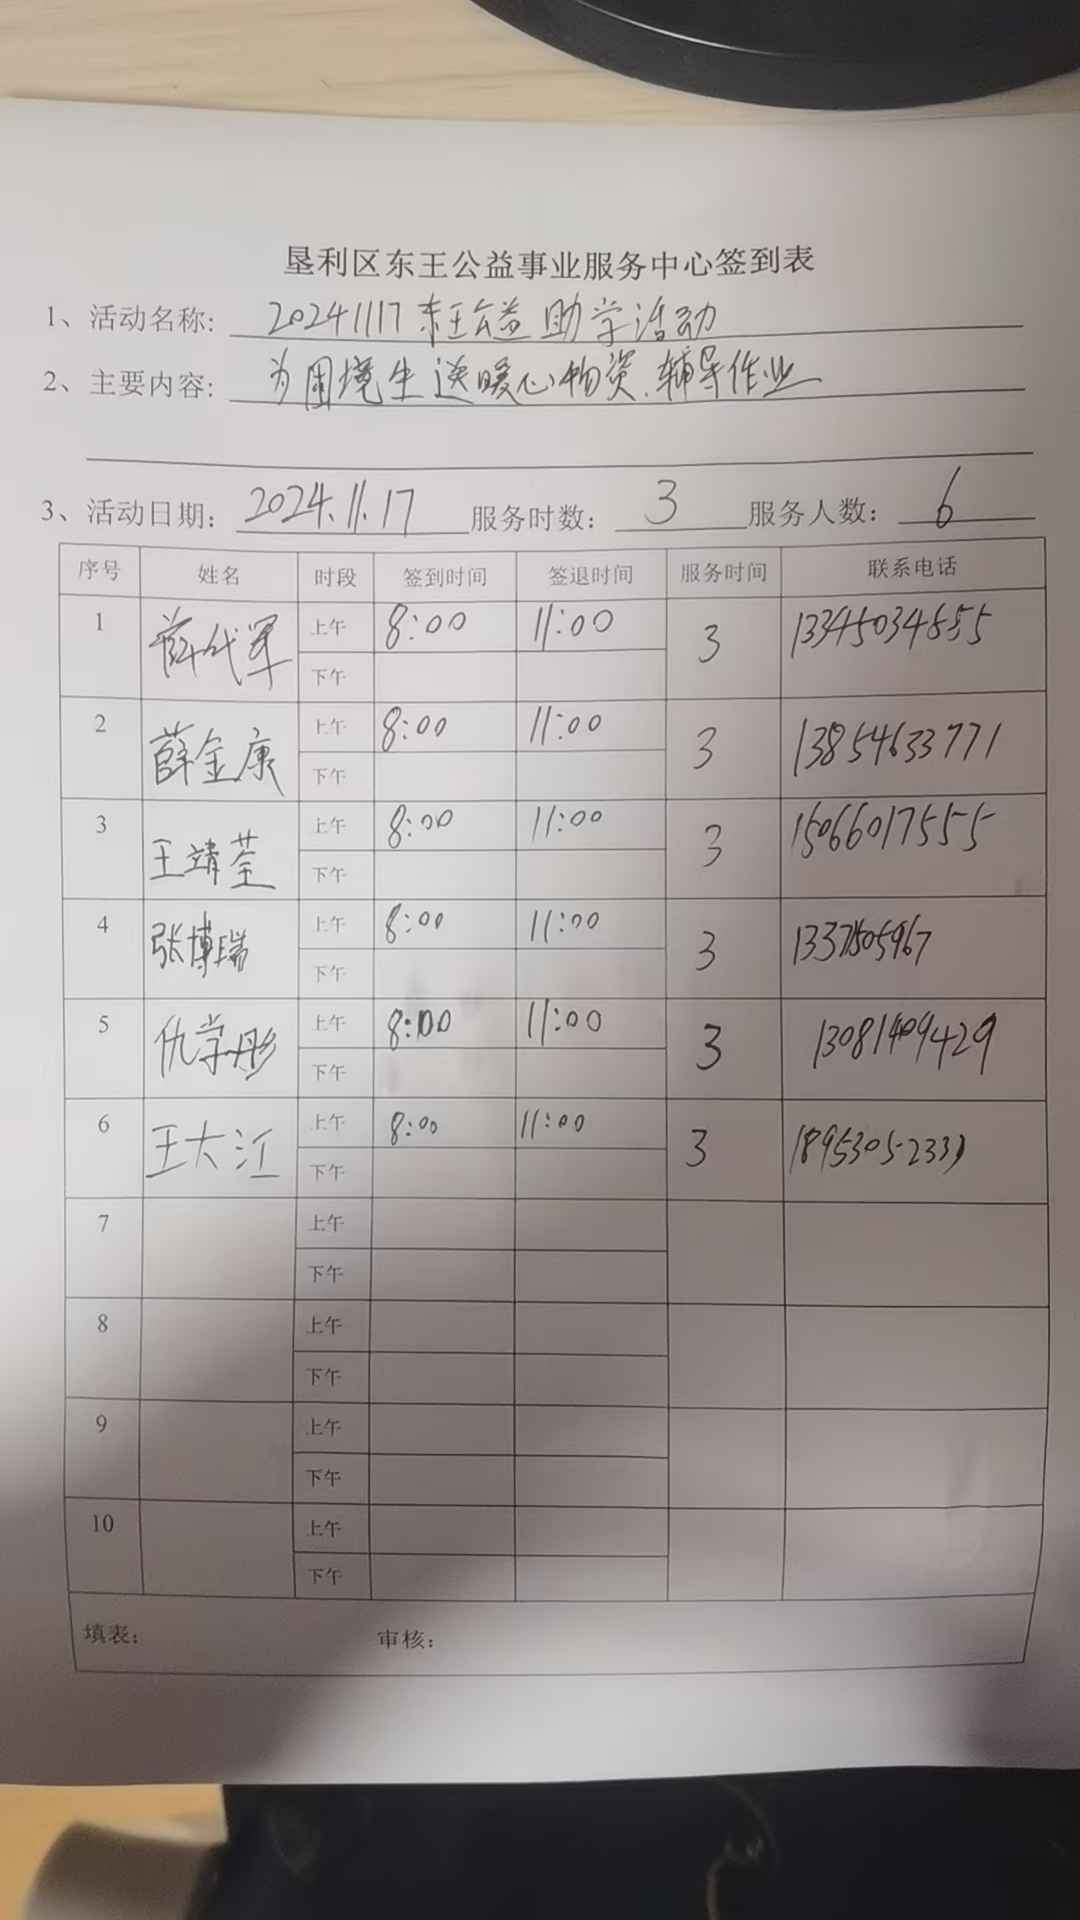 垦利区东王公益事业服务中心签到表
1、活动名称: 20241117东王公益助学活动
2、主要内容: 为困境生送暖心物资、辅导作业
3、活动日期: 2024.11.17 服务时数: 3 服务人数: 6
序号 姓名 时段 签到时间 签退时间 服务时间 联系电话
1 薛代军 上午 8:00 11:00 3
下午
2 薛金康 上午 8:00 11:00 3 13854633771
下午
3 王靖荃 上午 8:00 11:00 3 15066017555
下午
4 张博瑞 上午 8:00 11:00 3
下午
5 仇学彤 上午 8:00 11:00 3 13081409429
下午
6 王大江 上午 8:00 11:00 3
下午
7 上午
下午
8 上午
下午
9 上午
下午
10 上午
下午
填表: 审核: